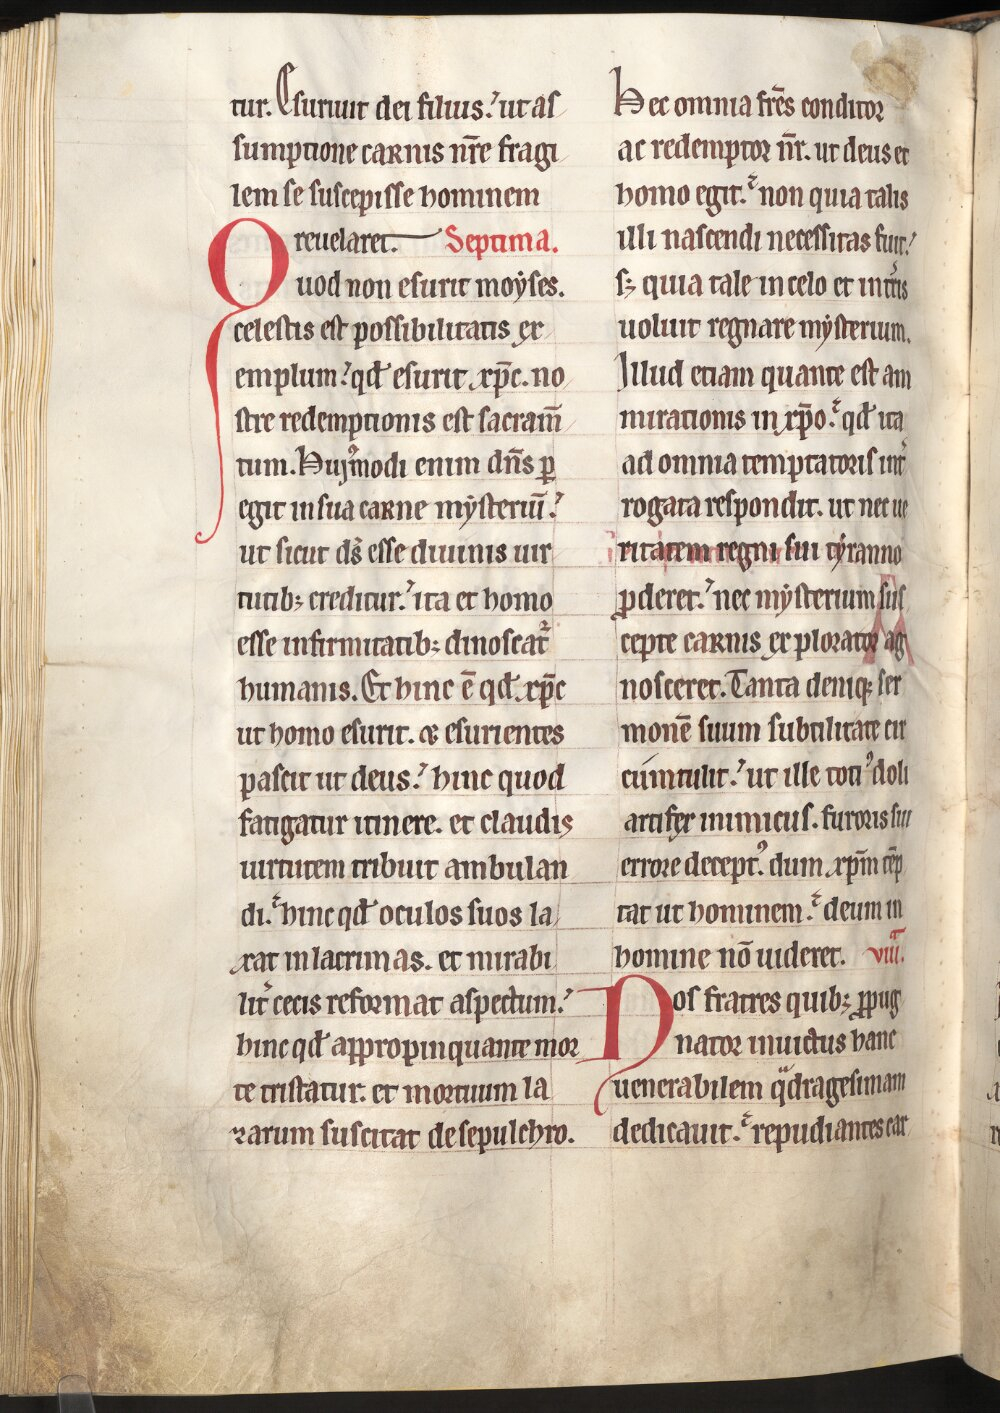 tur. Esuriuit dei filius. ut as
sumptione carnis nr̄e fragi
lem se suscepisse hominem
reuelaret. Septima.
Quod non esurit moyses.
celestis est possibilitatis ex
emplum. qd̄ esurit xp̄c. no
stre redemptionis est sacram̄
tum. Huiꝰmodi enim dn̄s ꝑ
egit in sua carne mysteriū.
ut sicut ds̄ esse diuinis uir
tutibꝫ creditur. ita et homo
esse infirmitatibꝫ dinoscat᷑
humanis. Et hinc ē qd̄ xp̄c
ut homo esurit. & esurientes
pascit ut deus. hinc quod
fatigatur itinere. et claudis
uirtutem tribuit ambulan
di. hinc qd̄ oculos suos la
xat in lacrimas. et mirabi
lit᷑ cecis reformat aspectum.
hinc qd̄ appropinquante mor
te tristatur. et mortuum la
zarum suscitat de sepulchro.
Hec omnia fr̄es conditor
ac redemptor nr̄. ut deus et
homo egit. non quia talis
illi nascendi necessitas fuit.
sꝫ quia tale in celo et in t᷑ris
uoluit regnare mysterium.
Illud etiam quante est am
mirationis in xp̄o. qd̄ ita
ad omnia temptatoris int᷑
rogata respondit. ut nec ue
ritatem regni sui tyranno
ꝑderet. nec mysterium sus
cepte carnis explorator ag
nosceret. Tanta deniqꝫ ser
monē suum subtilitate cir
cumtulit. ut ille totiꝰ doli
artifex inimicus. furoris sui
errore deceptꝰ. dum xp̄m tēp
tat ut hominem. deum in
homine nō uideret. viii.ͣ
Nos fratres quibꝫ ꝓpug
nator inuictus hanc
uenerabilem qͣdragesimam
dedicauit. repudiantes car